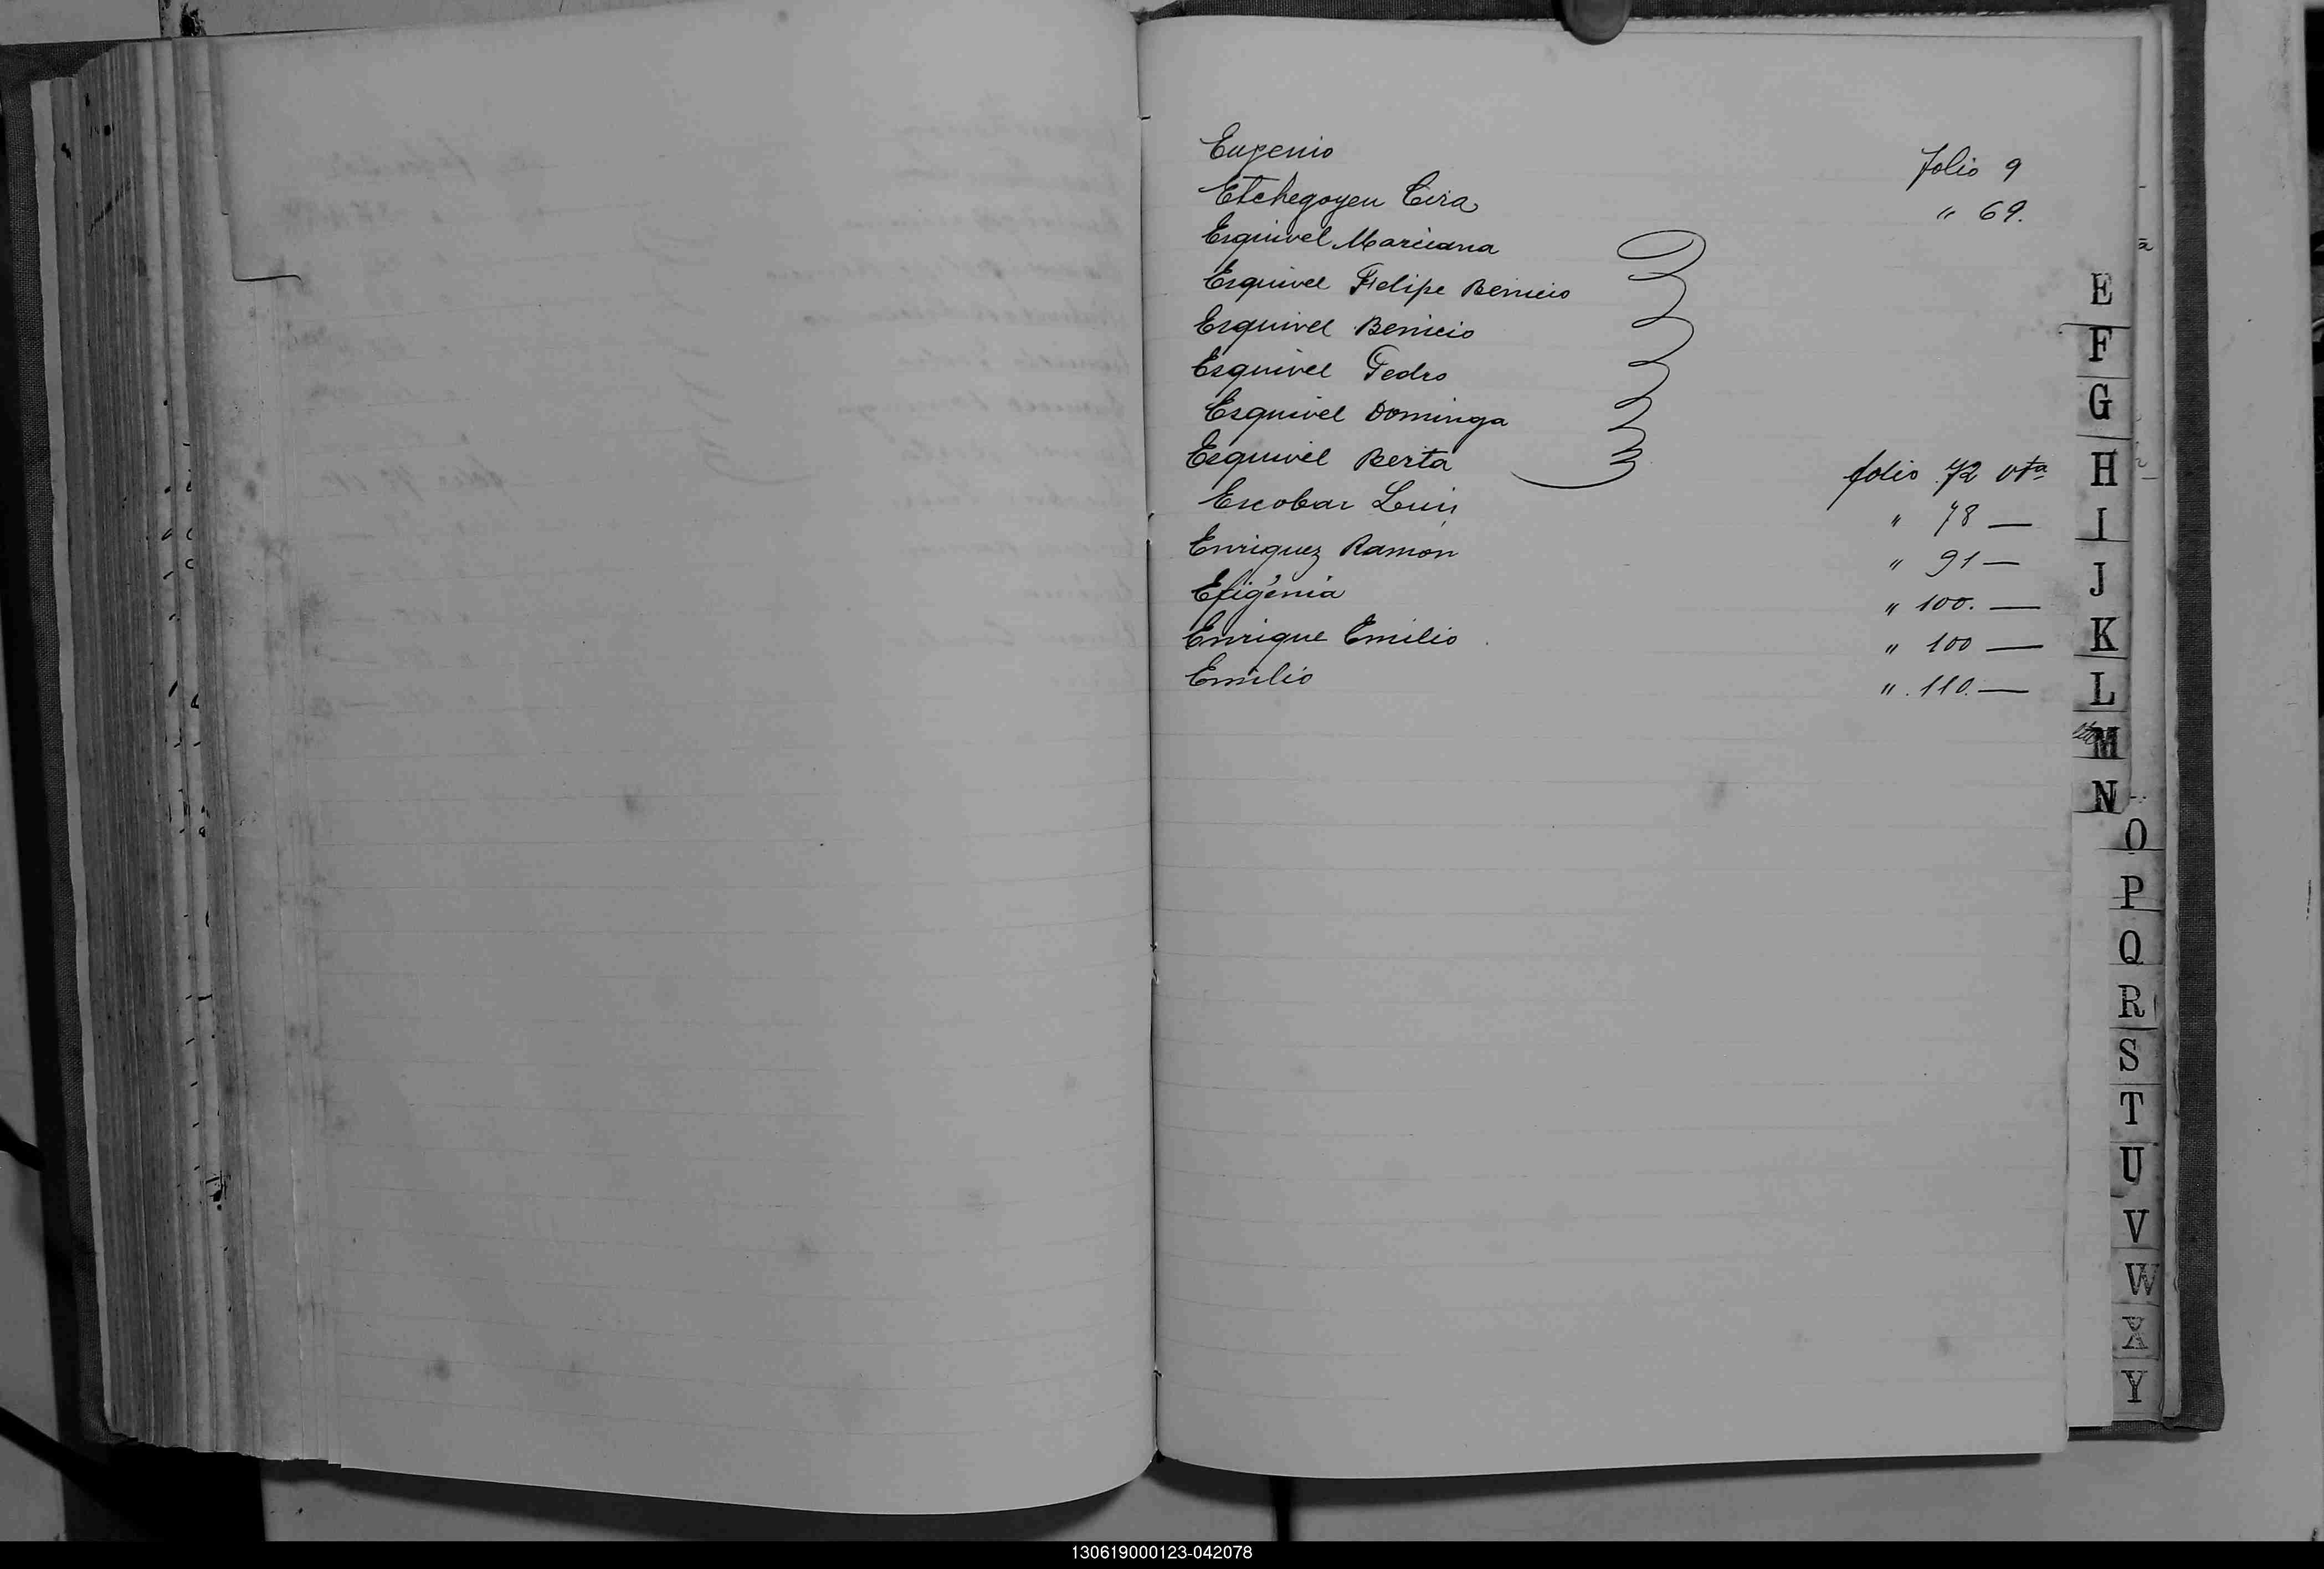 Eugenio folio 9
Etchegoyen Cira " 69.
Esquivel Marciana
Esquivel Felipe Benicio
Esquivel Benicio
Esquivel Pedro
Esquivel Dominga
Esquivel Berta folio 72 vta
Escobar Luis " 78 —
Enriquez Ramon " 91 —
Efigénia " 100. —
Enrique Emilio " 100 —
Emilio " 110. —
E
F
G
H
I
J
K
L
M
N
O
P
Q
R
S
T
U
V
W
X
Y
130619000123-042078